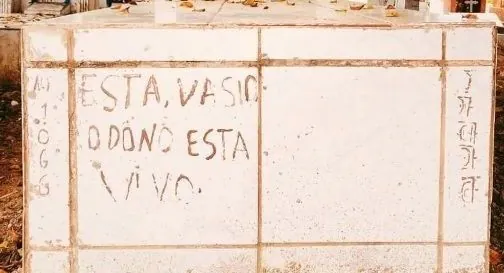 ESTA, VASIO
O DONO ESTA
VIVO.
1066